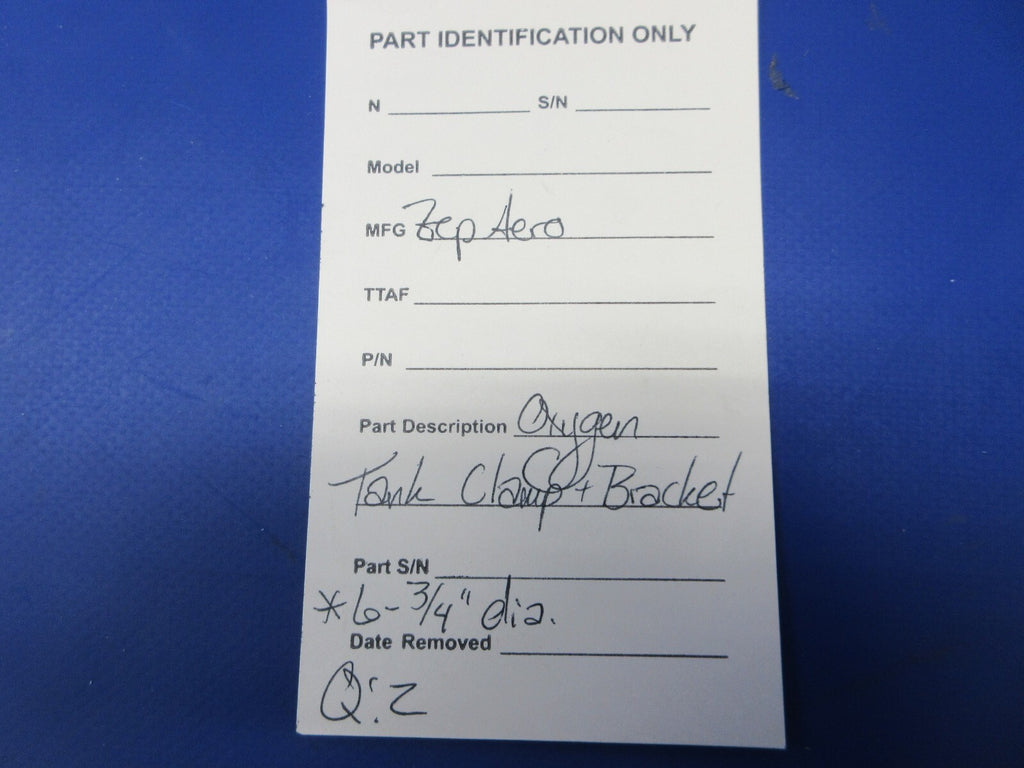 PART IDENTIFICATION ONLY
N ____________ S/N ____________
Model ____________
MFG Zep Aero
TTAF ____________
P/N ____________
Part Description Oxygen
Tank Clamp + Bracket
Part S/N ____________
* 6-3/4" dia.
Date Removed ____________
Q:2